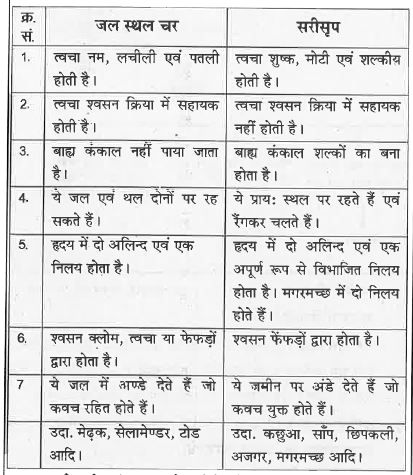 क्र. सं. | जल स्थल चर | सरीसृप
1. | त्वचा नम, लचीली एवं पतली | त्वचा शुष्क, मोटी एवं शल्कीय
होती है। | होती है।
2. | त्वचा श्वसन क्रिया में सहायक | त्वचा श्वसन क्रिया में सहायक
होती है। | नहीं होती है।
3. | बाह्य कंकाल नहीं पाया जाता | बाह्य कंकाल शल्कों का बना
है। | होता है।
4. | ये जल एवं थल दोनों पर रह | ये प्राय: स्थल पर रहते हैं एवं
सकते हैं। | रेंगकर चलते हैं।
5. | हृदय में दो अलिन्द एवं एक | हृदय में दो अलिन्द एवं एक
निलय होता है। | अपूर्ण रूप से विभाजित निलय
होता है। मगरमच्छ में दो निलय
होते हैं।
6. | श्वसन क्लोम, त्वचा या फेफड़ों | श्वसन फेंफड़ों द्वारा होता है।
द्वारा होता है।
7 | ये जल में अण्डे देते हैं जो | ये ज़मीन पर अंडे देते हैं जो
कवच रहित होते हैं। | कवच युक्त होते हैं।
उदा. मेढ़क, सेलामेण्डर, टोड | उदा. कछुआ, साँप, छिपकली,
आदि। | अजगर, मगरमच्छ आदि।